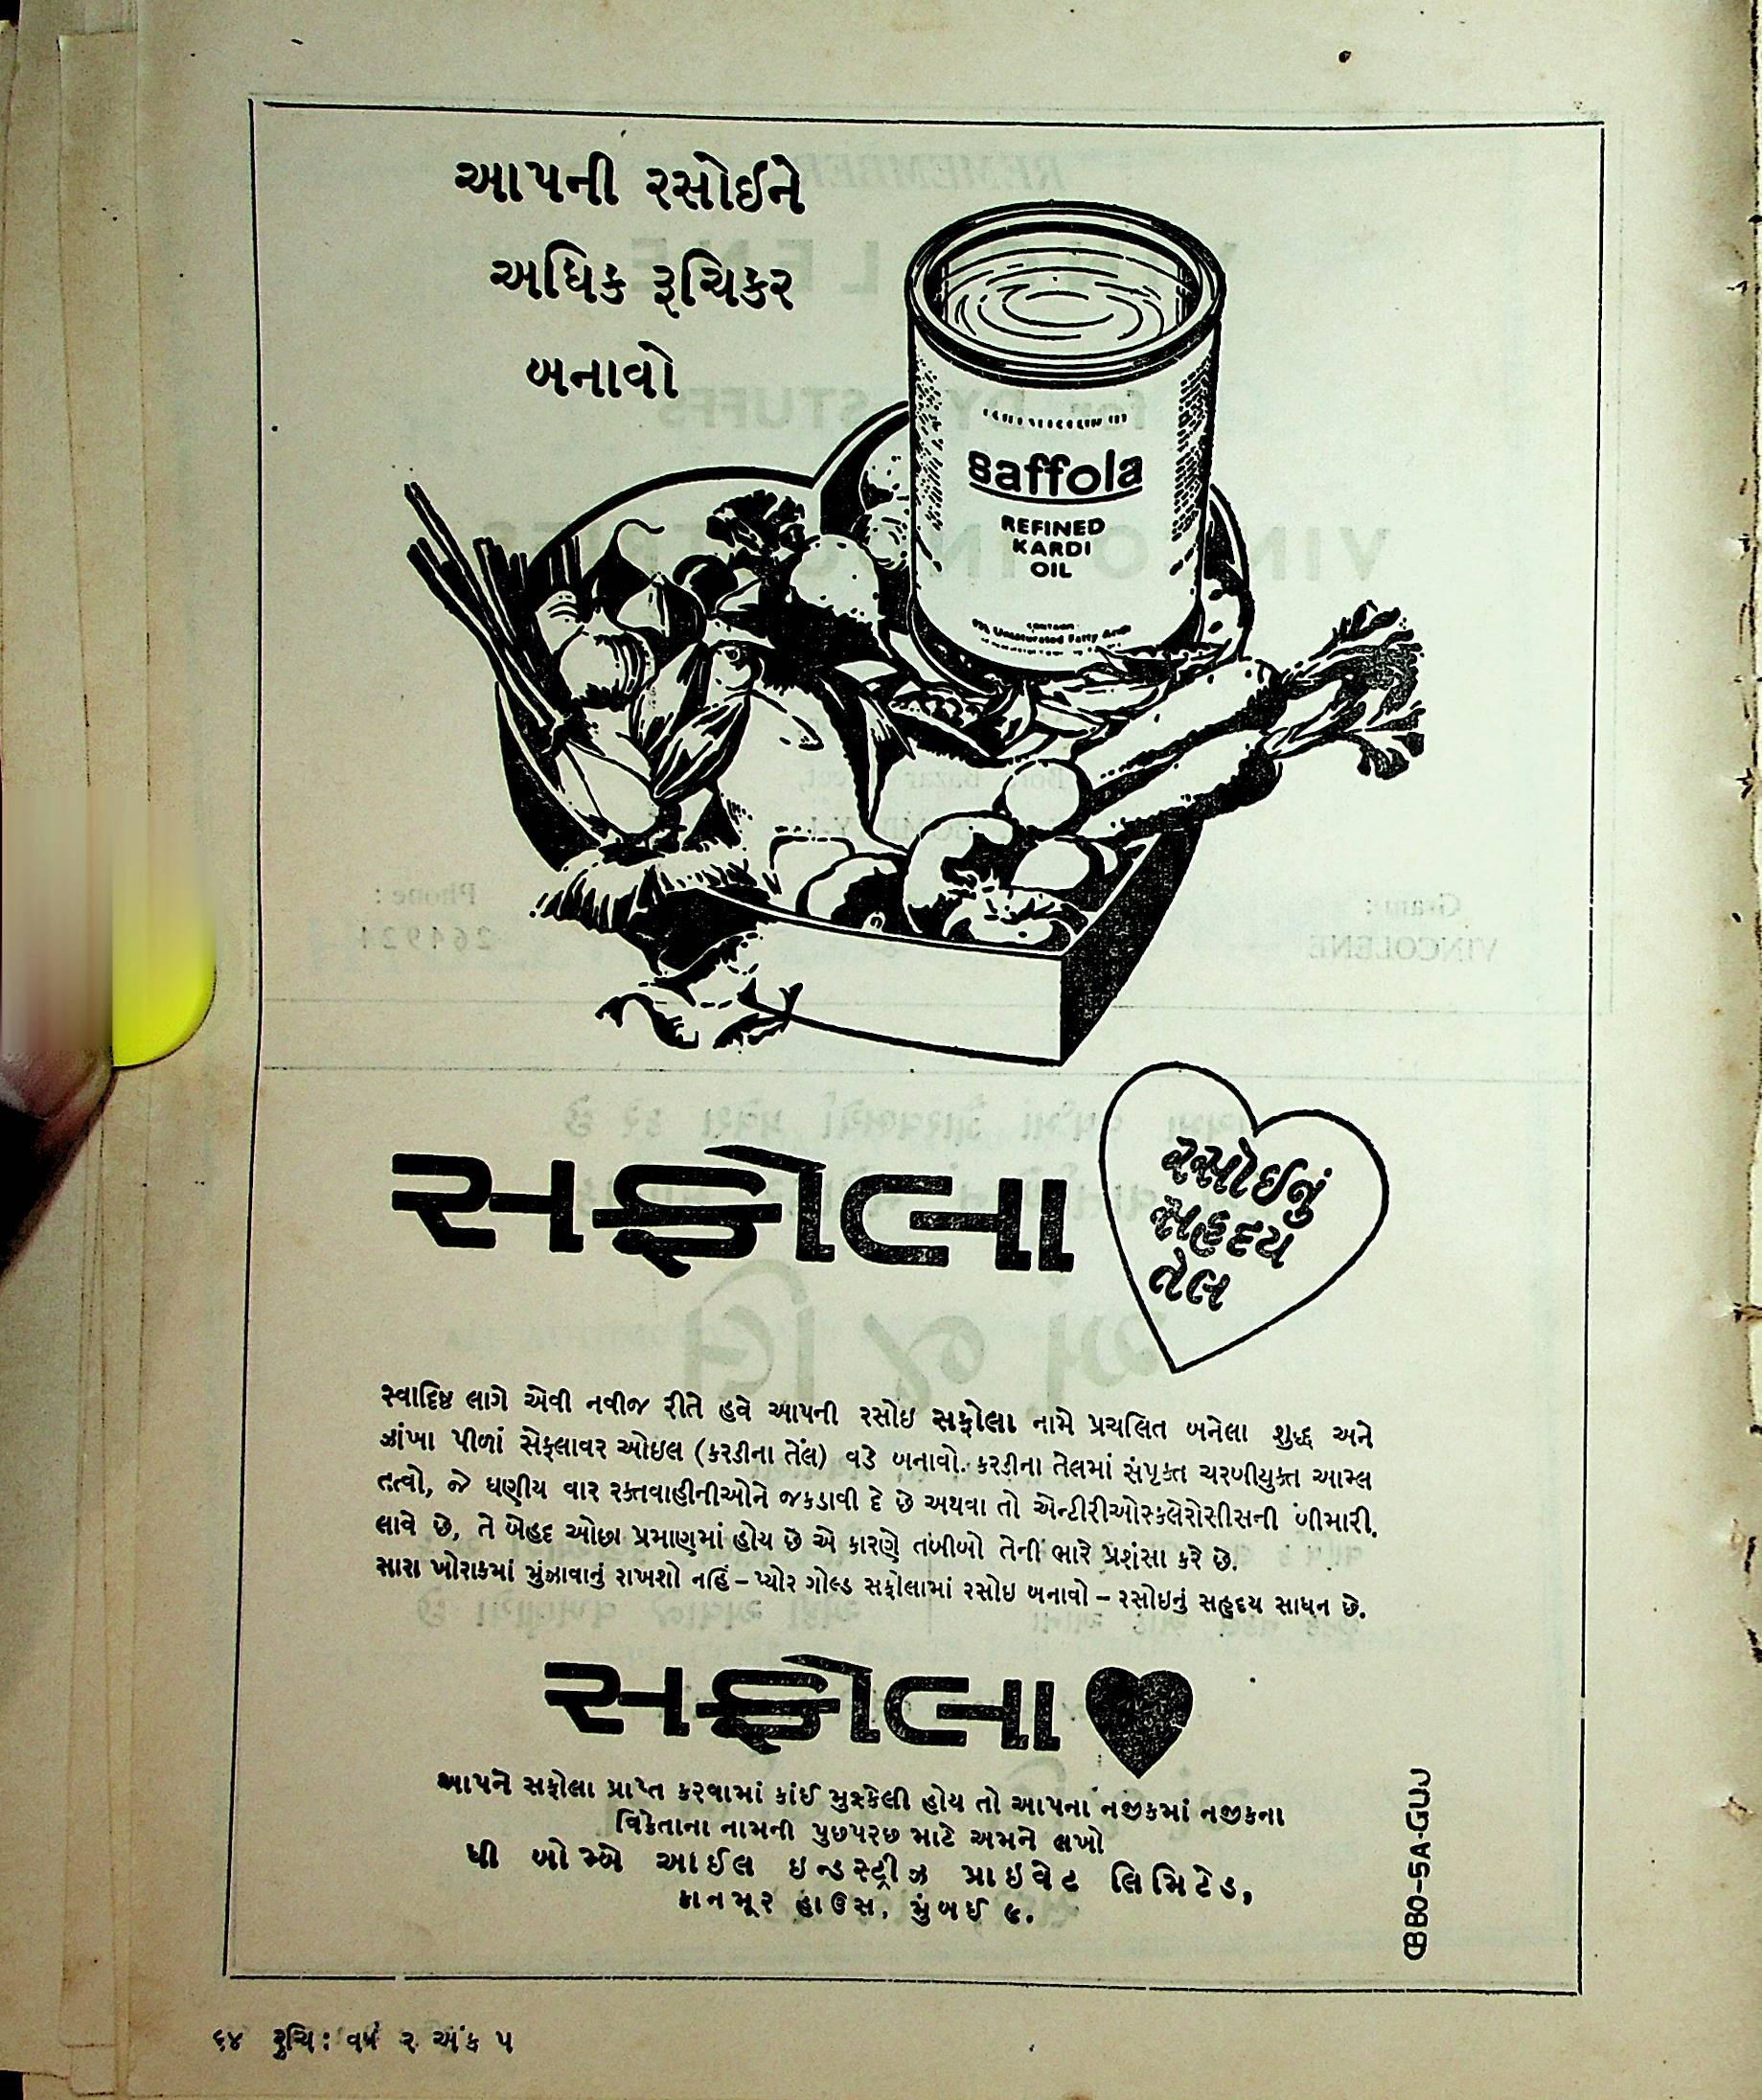 આપની રસોઈને
અધિક રૂચિકર
બનાવો
Saffola
REFINED
KARDI
OIL
Unsaturated Fatty Acids
સફોલા
રસોઈનું
સહૃદય
તેલ
સ્વાદિષ્ટ લાગે એવી નવીજ રીતે હવે આપની રસોઇ સફોલા નામે પ્રચલિત બનેલા શુદ્ધ અને
ઝાંખા પીળાં સેફ્લાવર ઓઇલ (કરડીના તેલ) વડે બનાવો. કરડીના તેલમાં સંપૃક્ત ચરબીયુક્ત આમ્લ
તત્વો, જે ઘણીય વાર રક્તવાહીનીઓને જકડાવી દે છે અથવા તો એન્ટીરીઓસ્કલેરોસીસની બીમારી.
લાવે છે, તે બેહદ ઓછા પ્રમાણમાં હોય છે એ કારણે તબીબો તેની ભારે પ્રશંસા કરે છે.
સારા ખોરાકમાં મુંઝાવાનું રાખશો નહિં – પ્યોર ગોલ્ડ સફોલામાં રસોઇ બનાવો – રસોઇનું સહૃદય સાધન છે.
સફોલા
આપને સફોલા પ્રાપ્ત કરવામાં કાંઈ મુશ્કેલી હોય તો આપના નજીકમાં નજીકના
વિક્રેતાના નામની પુછપરછ માટે અમને લખો
ધી બોમ્બે આઈલ ઇન્ડસ્ટ્રીઝ પ્રાઇવેટ લિમિટેડ,
કાનમૂર હાઉસ, મુંબઈ ૯.
BBO-SA-GUJ
૬૪ રુચિ: વર્ષ ૨ અંક ૫